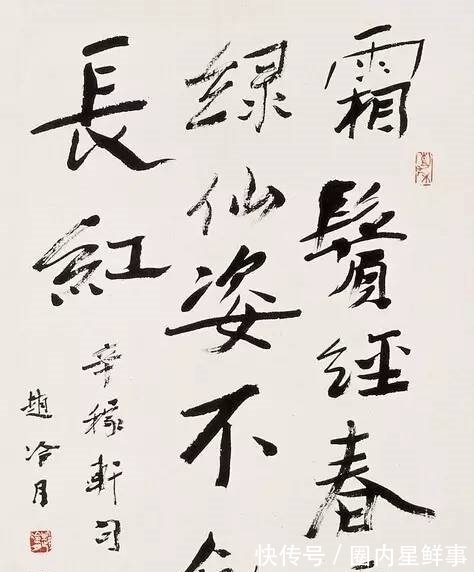 霜鬢經春
緑仙姿不
長紅
辛稼軒句
趙冷月
快传号 / 圈内星鲜事